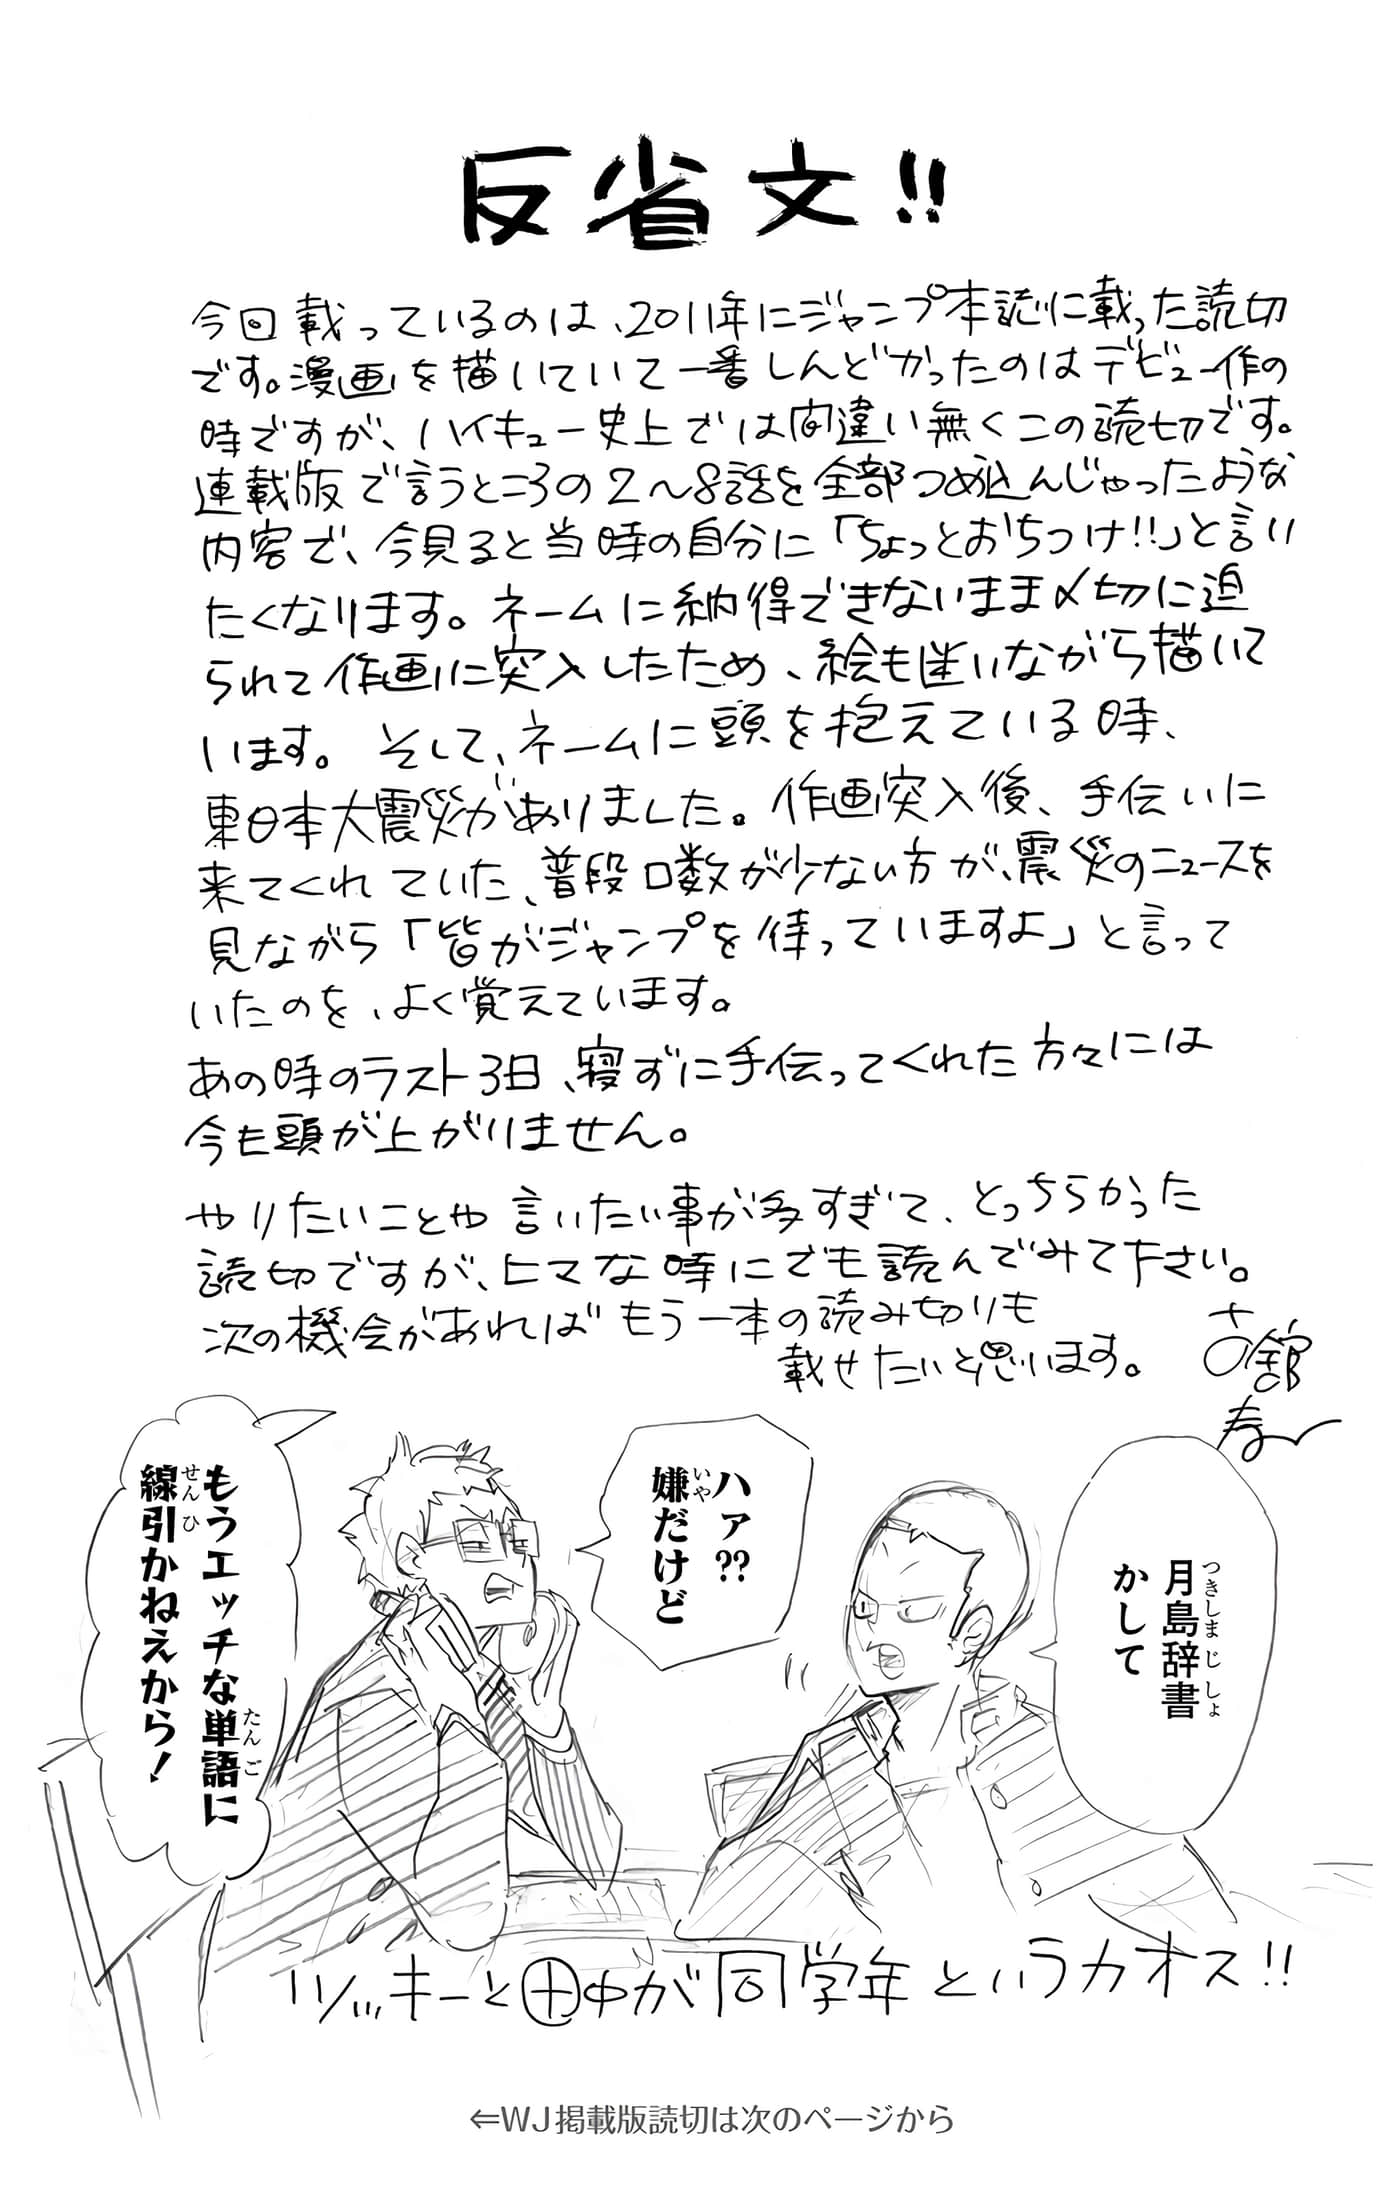 反省文!!
今回載っているのは、2011年にジャンプ本誌に載った読切
です。漫画を描いていて一番しんどかったのはデビュー作の
時ですが、ハイキュー史上では間違い無くこの読切です。
連載版で言うところの2〜8話を全部つめ込んじゃったような
内容で、今見ると当時の自分に「ちょっとおちつけ!!」と言い
たくなります。ネームに納得できないまま〆切に迫
られて作画に突入したため、絵も迷いながら描いて
います。そして、ネームに頭を抱えている時、
東日本大震災がありました。作画突入後、手伝いに
来てくれていた、普段口数が少ない方が、震災のニュースを
見ながら「皆がジャンプを待っていますよ」と言って
いたのを、よく覚えています。
あの時のラスト3日、寝ずに手伝ってくれた方々には
今も頭が上がりません。
やりたいことや言いたい事が多すぎて、とっちらかった
読切ですが、ヒマな時にでも読んでみて下さい。
次の機会があればもう一本の読み切りも
載せたいと思います。
古舘
春一
月島辞書
つきしまじしょ
かして
ハァ??
嫌だけど
いや
もうエッチな単語に
たんご
線引かねえから!
せんひ
ツッキーと田中が同学年というカオス!!
⇐WJ掲載版読切は次のページから